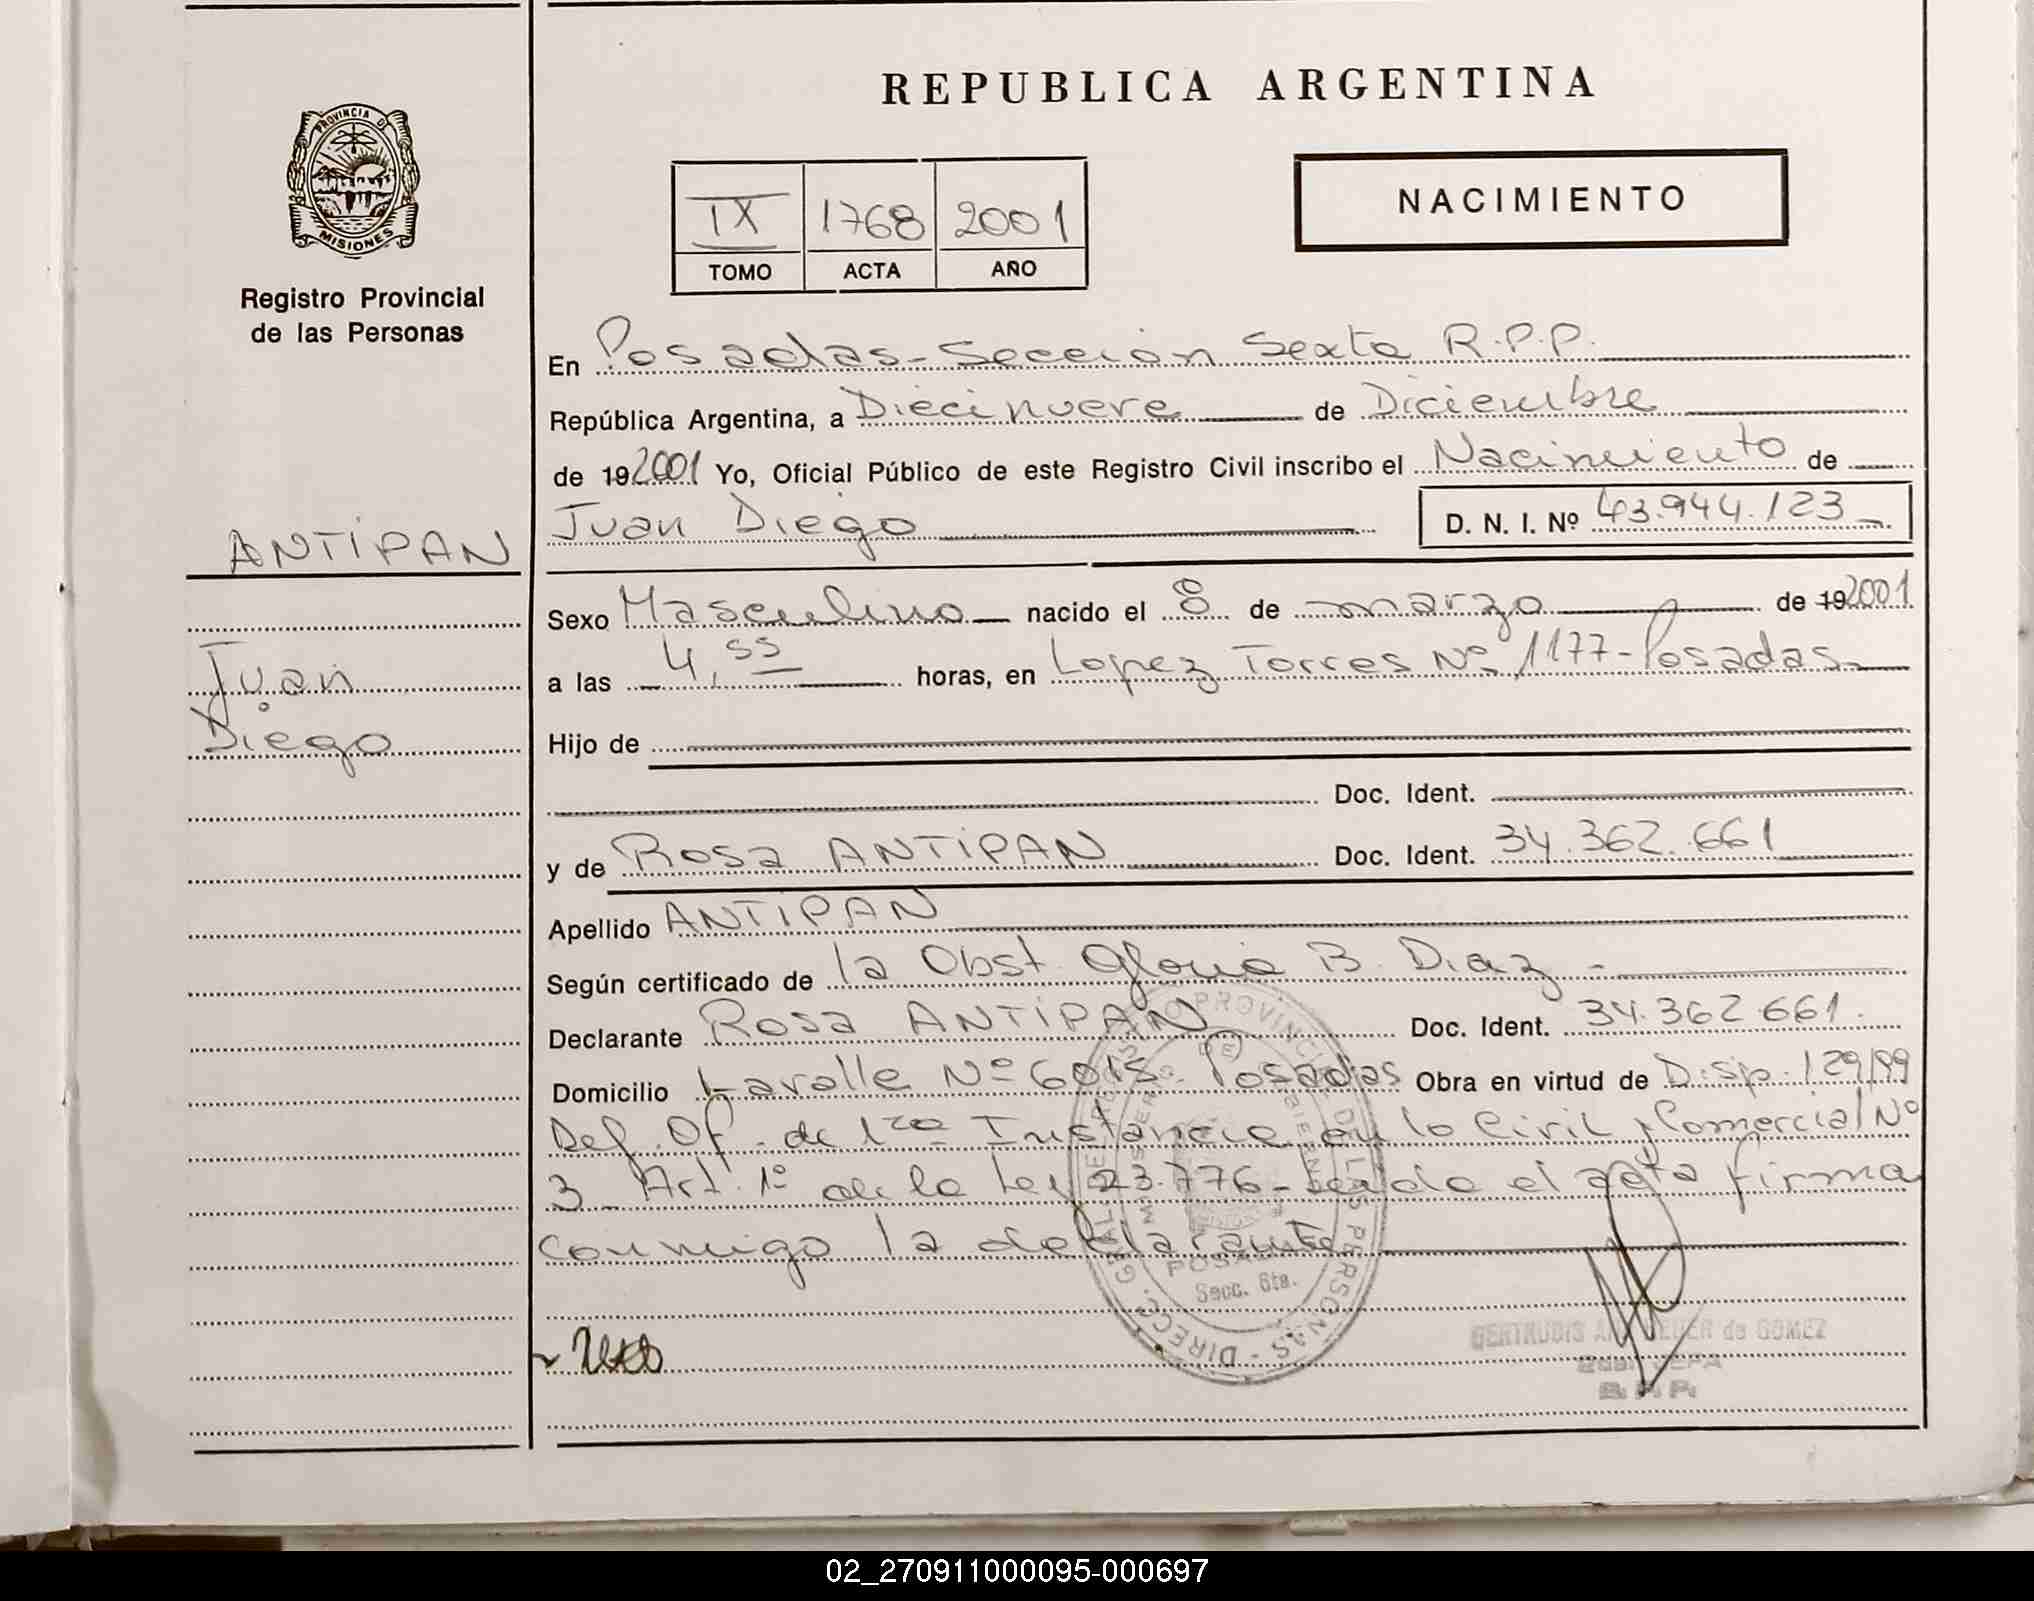 REPUBLICA ARGENTINA
PROVINCIA DE
MISIONES
Registro Provincial
de las Personas
IX 1768 2001
TOMO ACTA AÑO
NACIMIENTO
En Posadas - Sección Sexta R.P.P.
República Argentina, a Diecinueve de Diciembre
de 192001 Yo, Oficial Público de este Registro Civil inscribo el Nacimiento de
Juan Diego D. N. I. Nº 43.944.123
ANTIPAN
Sexo Masculino nacido el 8 de marzo de 192001
a las 4,55 horas, en Lopez Torres Nº 1177 - Posadas
Juan
Diego
Hijo de
Doc. Ident.
y de Rosa ANTIPAN Doc. Ident. 34.362.661
Apellido ANTIPAN
Según certificado de la Obst. Gloria B. Diaz -
Declarante Rosa ANTIPAN Doc. Ident. 34.362.661.
Domicilio Lavalle Nº 6018 - Posadas Obra en virtud de Disp. 129/99
Def. Of. de 1ra Instancia en lo Civil y Comercial Nº
3 - Art. 1º de la Ley 23.776 - Leida el acta firma
conmigo la declarante
DIRECC. GRAL. REGISTRO PROVINCIAL DE LAS PERSONAS
POSADAS
Secc. 6ta.
GERTRUDIS de GOMEZ
JEFA
R. P. P.
02_270911000095-000697